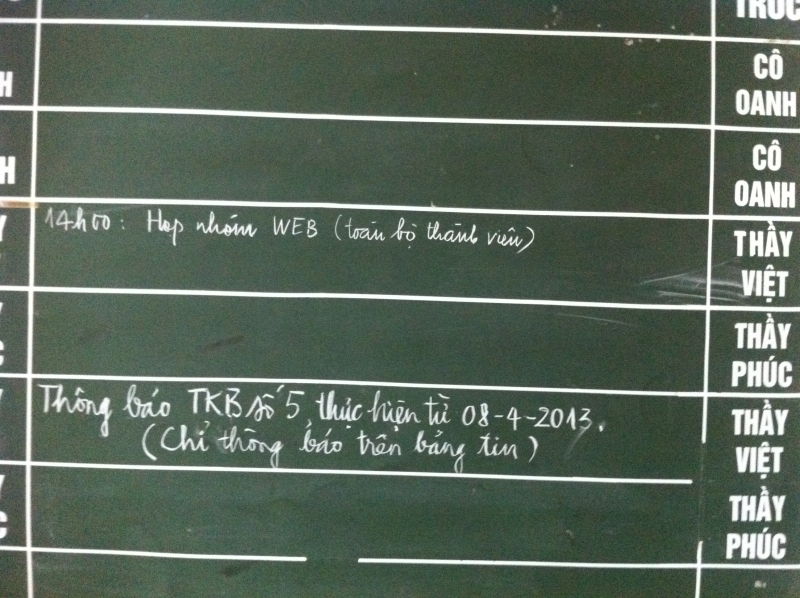 TRÚC
H
CÔ
OANH
H
CÔ
OANH
14h00: Họp nhóm WEB (toàn bộ thành viên)
Y
THẦY
VIỆT
C
THẦY
PHÚC
Thông báo TKB số 5 thực hiện từ 08-4-2013.
(Chỉ thông báo trên bảng tin)
THẦY
VIỆT
Y
C
THẦY
PHÚC